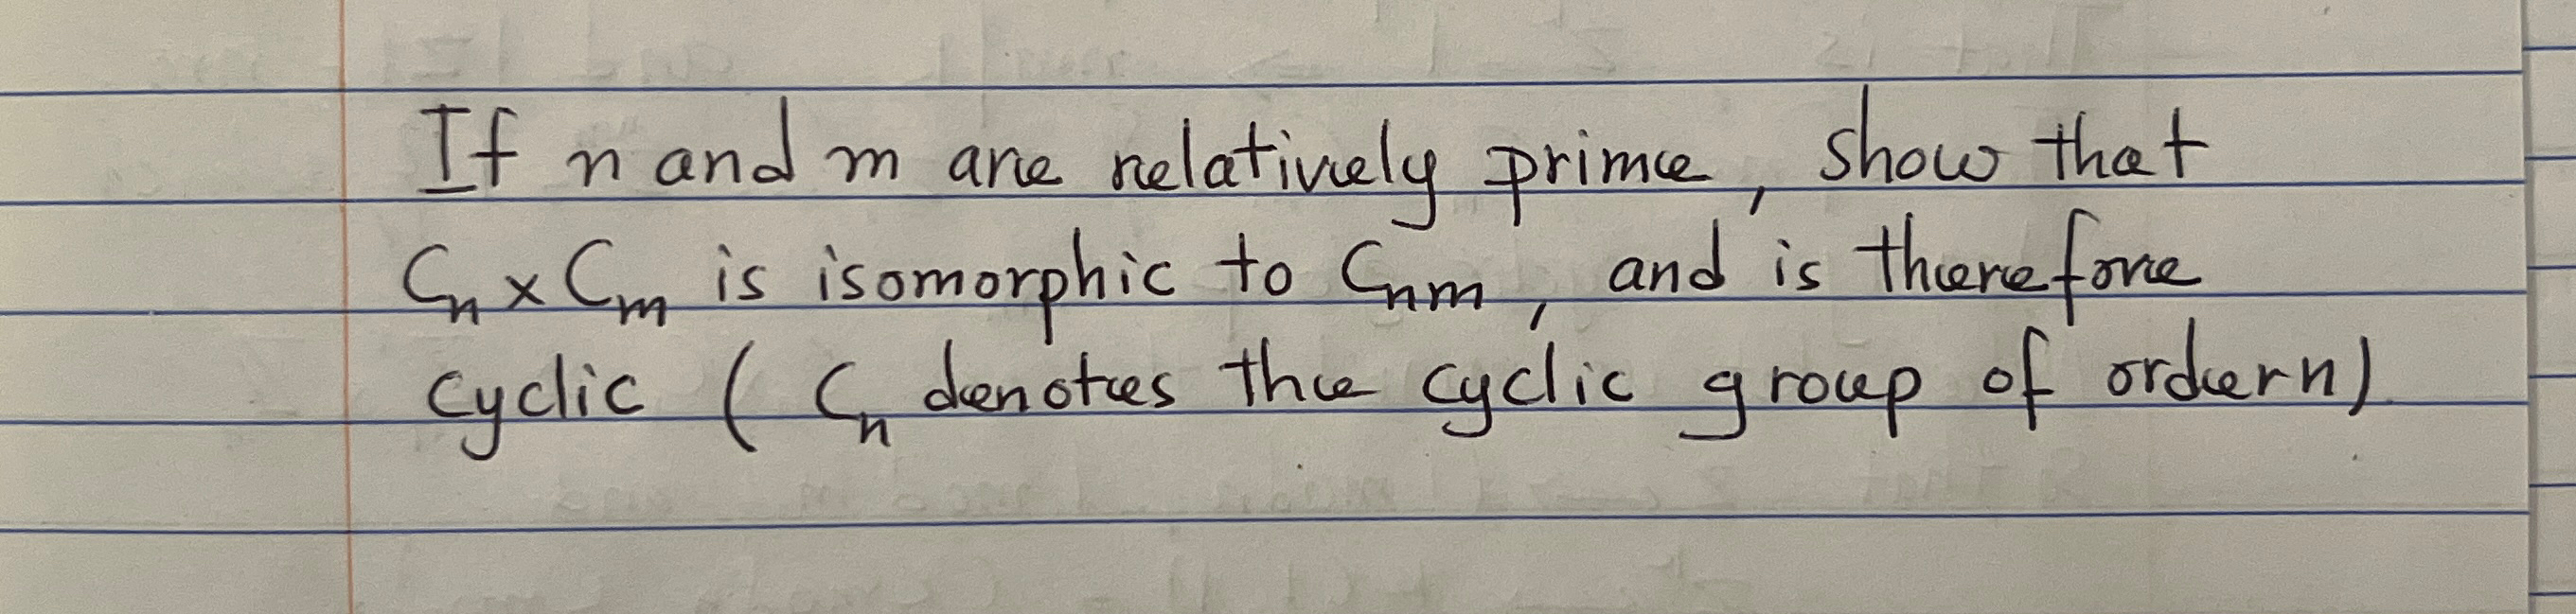 If n and m are relatively prime, show that
Cn x Cm is isomorphic to Cnm, and is therefore
cyclic ( Cn denotes the cyclic group of order n)